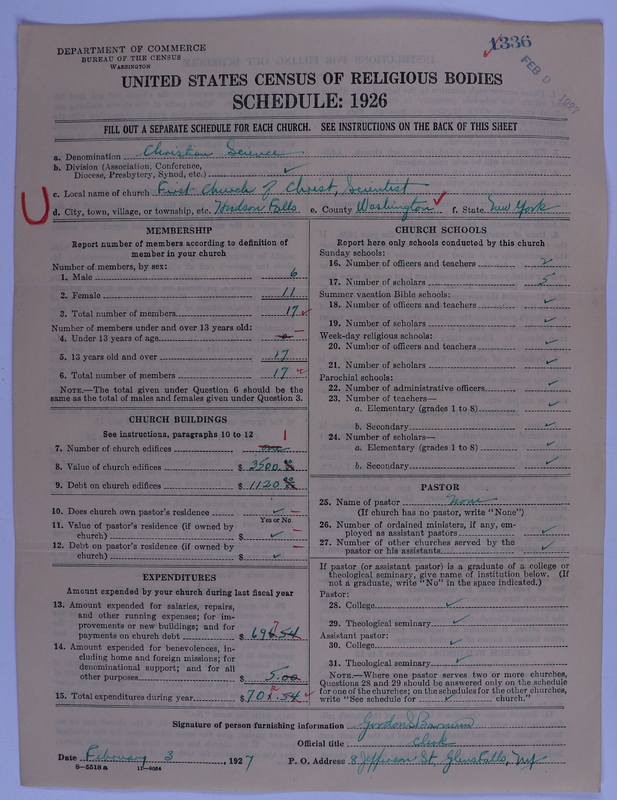 DEPARTMENT OF COMMERCE
BUREAU OF THE CENSUS
WASHINGTON
1336
FEB
UNITED STATES CENSUS OF RELIGIOUS BODIES
SCHEDULE: 1926
FILL OUT A SEPARATE SCHEDULE FOR EACH CHURCH. SEE INSTRUCTIONS ON THE BACK OF THIS SHEET
a. Denomination Christian Science
b. Division (Association, Conference,
Diocese, Presbytery, Synod, etc.) ✓
c. Local name of church First Church of Christ, Scientist
d. City, town, village, or township, etc. Hudson Falls e. County Washington f. State New York
MEMBERSHIP
Report number of members according to definition of
member in your church
Number of members, by sex:
1. Male 6
2. Female 11
3. Total number of members 17
Number of members under and over 13 years old:
4. Under 13 years of age
5. 13 years old and over 17
6. Total number of members 17
NOTE.—The total given under Question 6 should be
the same as the total of males and females given under Question 3.
CHURCH BUILDINGS
See instructions, paragraphs 10 to 12
7. Number of church edifices 1
8. Value of church edifices $ 3500.
9. Debt on church edifices $ 1120
10. Does church own pastor's residence ✓
Yes or No
11. Value of pastor's residence (if owned by
church) $ ✓
12. Debt on pastor's residence (if owned by
church) $ ✓
EXPENDITURES
Amount expended by your church during last fiscal year
13. Amount expended for salaries, repairs,
and other running expenses; for im-
provements or new buildings; and for
payments on church debt $
14. Amount expended for benevolences, in-
cluding home and foreign missions; for
denominational support; and for all
other purposes $ 5.00
15. Total expenditures during year $
CHURCH SCHOOLS
Report here only schools conducted by this church
Sunday schools:
16. Number of officers and teachers 2
17. Number of scholars 5
Summer vacation Bible schools:
18. Number of officers and teachers ✓
19. Number of scholars ✓
Week-day religious schools:
20. Number of officers and teachers ✓
21. Number of scholars ✓
Parochial schools:
22. Number of administrative officers ✓
23. Number of teachers—
a. Elementary (grades 1 to 8) ✓
b. Secondary ✓
24. Number of scholars—
a. Elementary (grades 1 to 8) ✓
b. Secondary ✓
PASTOR
25. Name of pastor None
(If church has no pastor, write "None")
26. Number of ordained ministers, if any, em-
ployed as assistant pastors ✓
27. Number of other churches served by the
pastor or his assistants ✓
If pastor (or assistant pastor) is a graduate of a college or
theological seminary, give name of institution below. (If
not a graduate, write "No" in the space indicated.)
Pastor:
28. College ✓
29. Theological seminary ✓
Assistant pastor:
30. College ✓
31. Theological seminary ✓
NOTE.—Where one pastor serves two or more churches,
Questions 28 and 29 should be answered only on the schedule
for one of the churches; on the schedules for the other churches,
write "See schedule for ✓ church."
Signature of person furnishing information Gordon
Official title Clerk
Date February 3, 1927 P. O. Address 8 Jefferson St, Glens Falls, NY
6—5518 a 11—9064